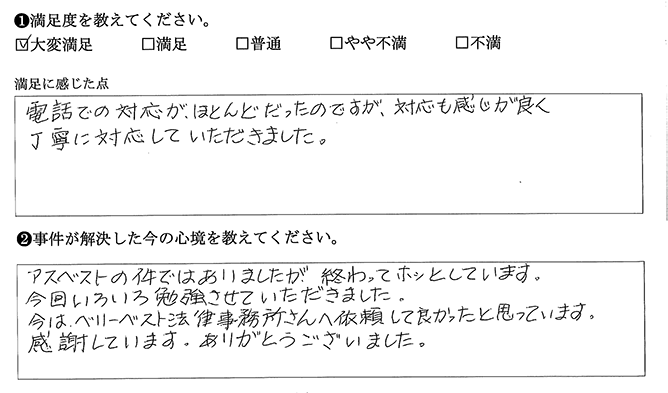 ❶満足度を教えてください。
☑大変満足 □満足 □普通 □やや不満 □不満
満足に感じた点
電話での対応が、ほとんどだったのですが、対応も感じが良く
丁寧に対応していただきました。
❷事件が解決した今の心境を教えてください。
アスベストの件ではありましたが終わってホッとしています。
今回いろいろ勉強させていただきました。
今は、ベリーベスト法律事務所さんへ依頼して良かったと思っています。
感謝しています。ありがとうございました。